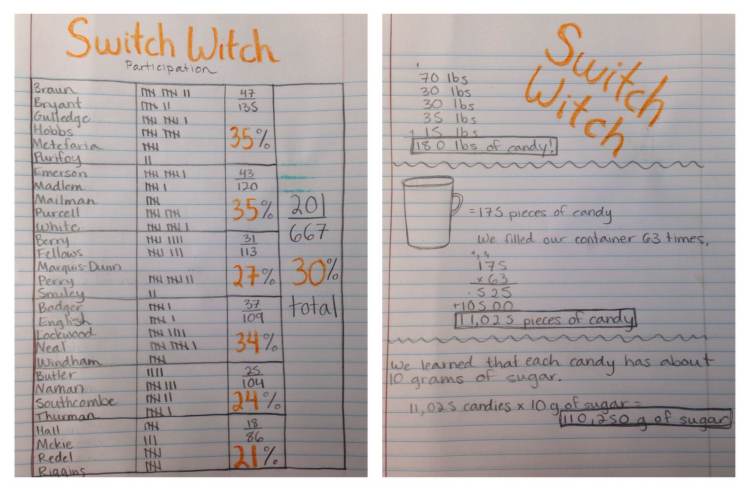 Switch Witch
Participation
Braun 47
Bryant 135
Gulledge
Hobbs 35%
Metefaria
Purifoy
Emerson 43
Madlem 120
Mailman
Purcell 35% 201
White 667
Berry 31
Fellows 113
Marquis-Dunn
Perry 27% 30%
Smiley
Badger 37 total
English 109
Lockwood
Neal 34%
Windham
Butler 25
Naman 104
Southcombe 24%
Thurman
Hall 18
Mckie 86
Redel 21%
Riggins
Switch
Witch
1
70 lbs
30 lbs
30 lbs
35 lbs
+ 15 lbs
180 lbs of candy!
= 175 pieces of candy
We filled our container 63 times.
175
x 63
525
+10500
11,025 pieces of candy
We learned that each candy has about
10 grams of sugar.
11,025 candies x 10 g of sugar =
110,250 g of sugar